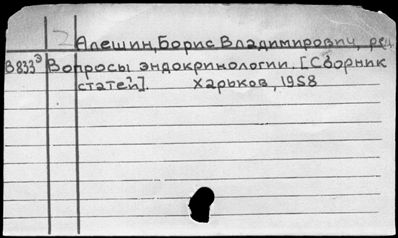 Алешин, Борис Владимирович, ред.
В833э Вопросы эндокринологии. [Сборник
статей]. Харьков, 1958